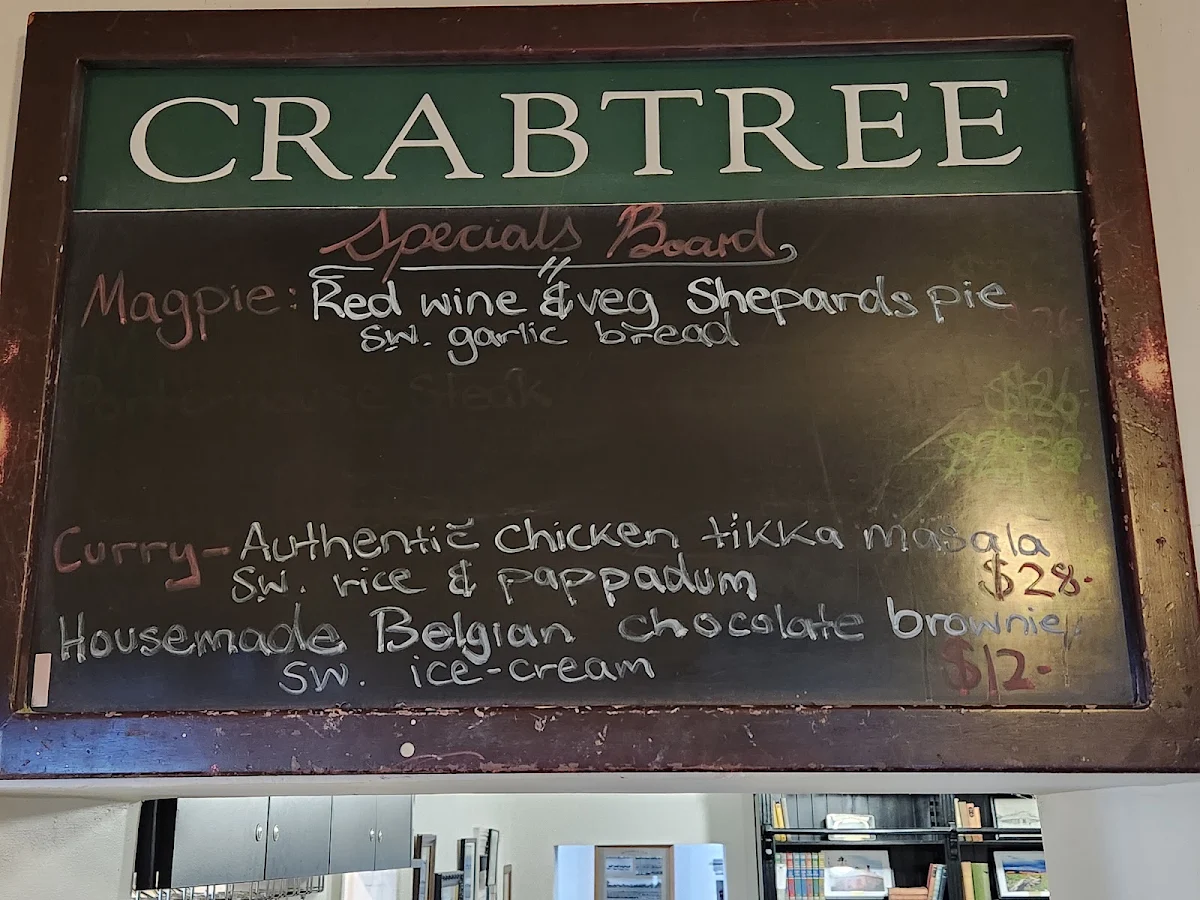 CRABTREE
Specials Board
Magpie: Red wine & veg Shepards pie
sw. garlic bread
Porterhouse Steak
$36-
Curry- Authentic chicken tikka masala
sw. rice & pappadum $28-
Housemade Belgian chocolate brownie
sw. ice-cream $12-